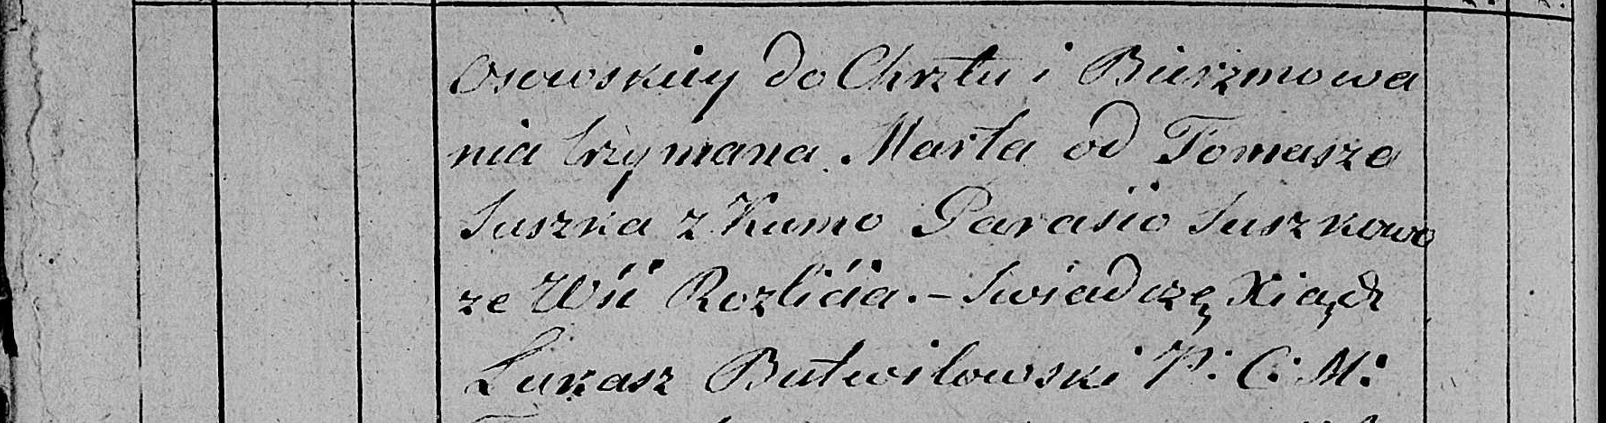 Osowskiey do Chrztu i Bierzmowa
nia trzymana Marta od Tomasza
Suszka z Kumo Parasio Suszkowo
ze Wsi Rozlicia. – Swiadczę Xiądz
Łukasz Butwiłowski P: C: M: